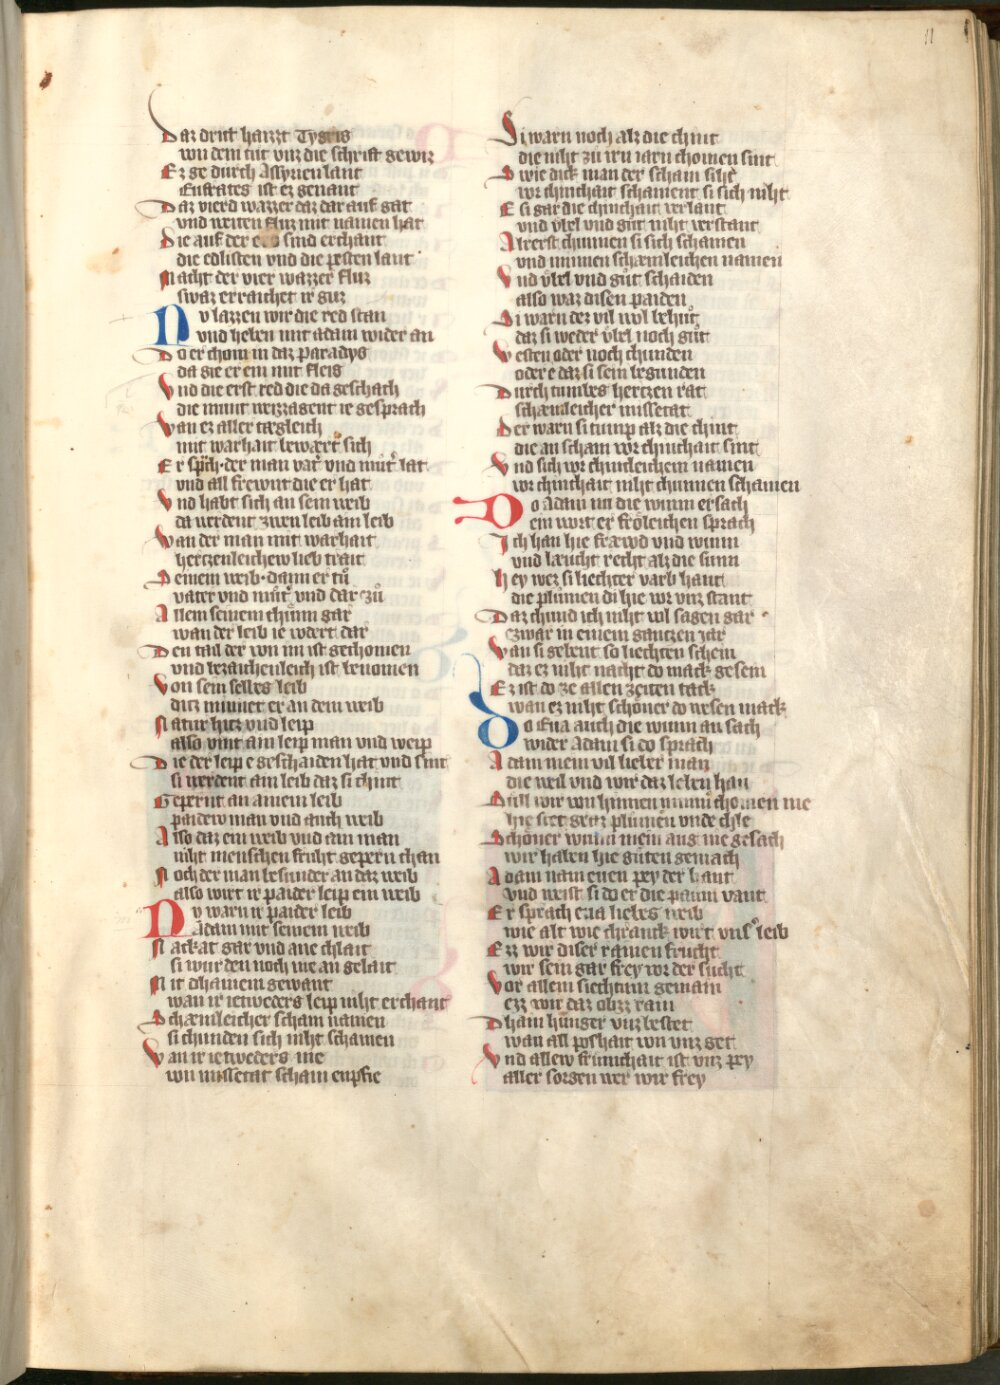 11
Daz dritt haizzt Tygris
von dem tůt vnz die schrift gewiz
Er ge durch Assyrien lant
Eufrates ist er genant
Daz vierd wazzer daz dar auf gat
vnd weiten fluz mit namen hat
Die auf der sind erchant
die edlisten vnd die pesten lant
Macht der vier wazzer fluz
swaz erraichet ir guz
Nv lazzen wir die red stan
vnd heben mit adam wider an
Do er chom in daz paradys
da gie er ein mit fleis
Vnd die erst red die da geschach
die munt weizzagent ie gesprach
Wan ez aller tægleich
mit warhait bewært sich
Er sprach der man vat vnd můt lat
vnd all frewnt die er hat
Vnd habt sich an sein weib
da werdent zwen leib ain leib
Wan der man mit warhait
hertzenleichew lieb trait
Seinem weib darin er tů
vater vnd můt vnd dar zů
Allem seinem chůnn gar
wan der leib ie wdert dar
Den tail der von im ist gechomen
vnd bezaichenleich ist benomen
Von sein selbes leib
ditz minnet er an dem weib
Natur hitz vnd leip
also wirt ain leip man vnd weip
Die der leip e geschaiden hat vnd sint
si werdent ain leib daz si chint
Gepernt an ainem leib
paidew man vnd auch weib
Also daz ein weib vnd ain man
niht menschen fruht gepern chan
Noch der man besunder an daz weib
also wirt ir paider leip ein weib
Nv warn ir paider leib
Adam mit seinem weib
Nackat gar vnd ane chlait
si wurden noch nie an gelait
Mit dhainem gewant
wan ir ietweders leip niht erchant
Schæmleicher scham namen
si chunden sich niht schamen
Wan ir ietweders nie
von missetat scham enpfie
Si warn noch alz die chint
die niht zů irn iarn chomen sint
Swie dick man der scham siht
vor chinthait schament si sich niht
E si gar die chinthait verlant
vnd vbel vnd gůt niht verstant
Alrerst chunnen si sich schamen
vnd minnen schæmleichen namen
Vnd vbel vnd gůt schaiden
also waz disen paiden
Si warn der vil wol behůt
daz si weder vbel noch gůt
Westen oder noch chunden
oder e daz si sein begunden
Durch tumbes hertzen rat
schæmleicher missetat
Der warn si tump alz die chint
die an scham vor chinthait sint
Vnd sich vor chintleichem namen
vor chinthait niht chunnen schamen
Do Adam nu die wunn ersach
ein wort er frőleichen sprach
Ich han hie fræwd vnd wunn
vnd læucht recht alz die sunn
Hey wez si liechter varb hant
die plůmen di hie vor vnz stant
Daz chund ich niht wol sagen gar
zwar in einem gantzen iar
Wan si gebent so liechten schein
daz ez niht nacht do mack gesein
Ez ist do ze allen zeiten tack
wan ez niht schőner do wesen mack
Do Eua auch die wunn an sach
wider Adam si do sprach
Adam mein vil lieber man
die weil vnd wir daz leben han
Süll wir von hinnen nimm chomen nie
hie stet genz plůmen vnde chle
Schőner wunn mein aug nie gesach
wir haben hie gůten gemach
Adam nam euen pey der hant
vnd weist si do er die paum vant
Er sprach eua liebes weib
wie alt wie chranck wirt vns leib
Ezz wir diser ramen frucht
wir sein gar frey vor der sucht
Vor allem siechtum gemain
ezz wir daz obzz rain
Dhain hunger vnz bestet
wan all poshait von vnz get
Vnd allew frumchait ist vnz pey
aller sorgen wer wir frey